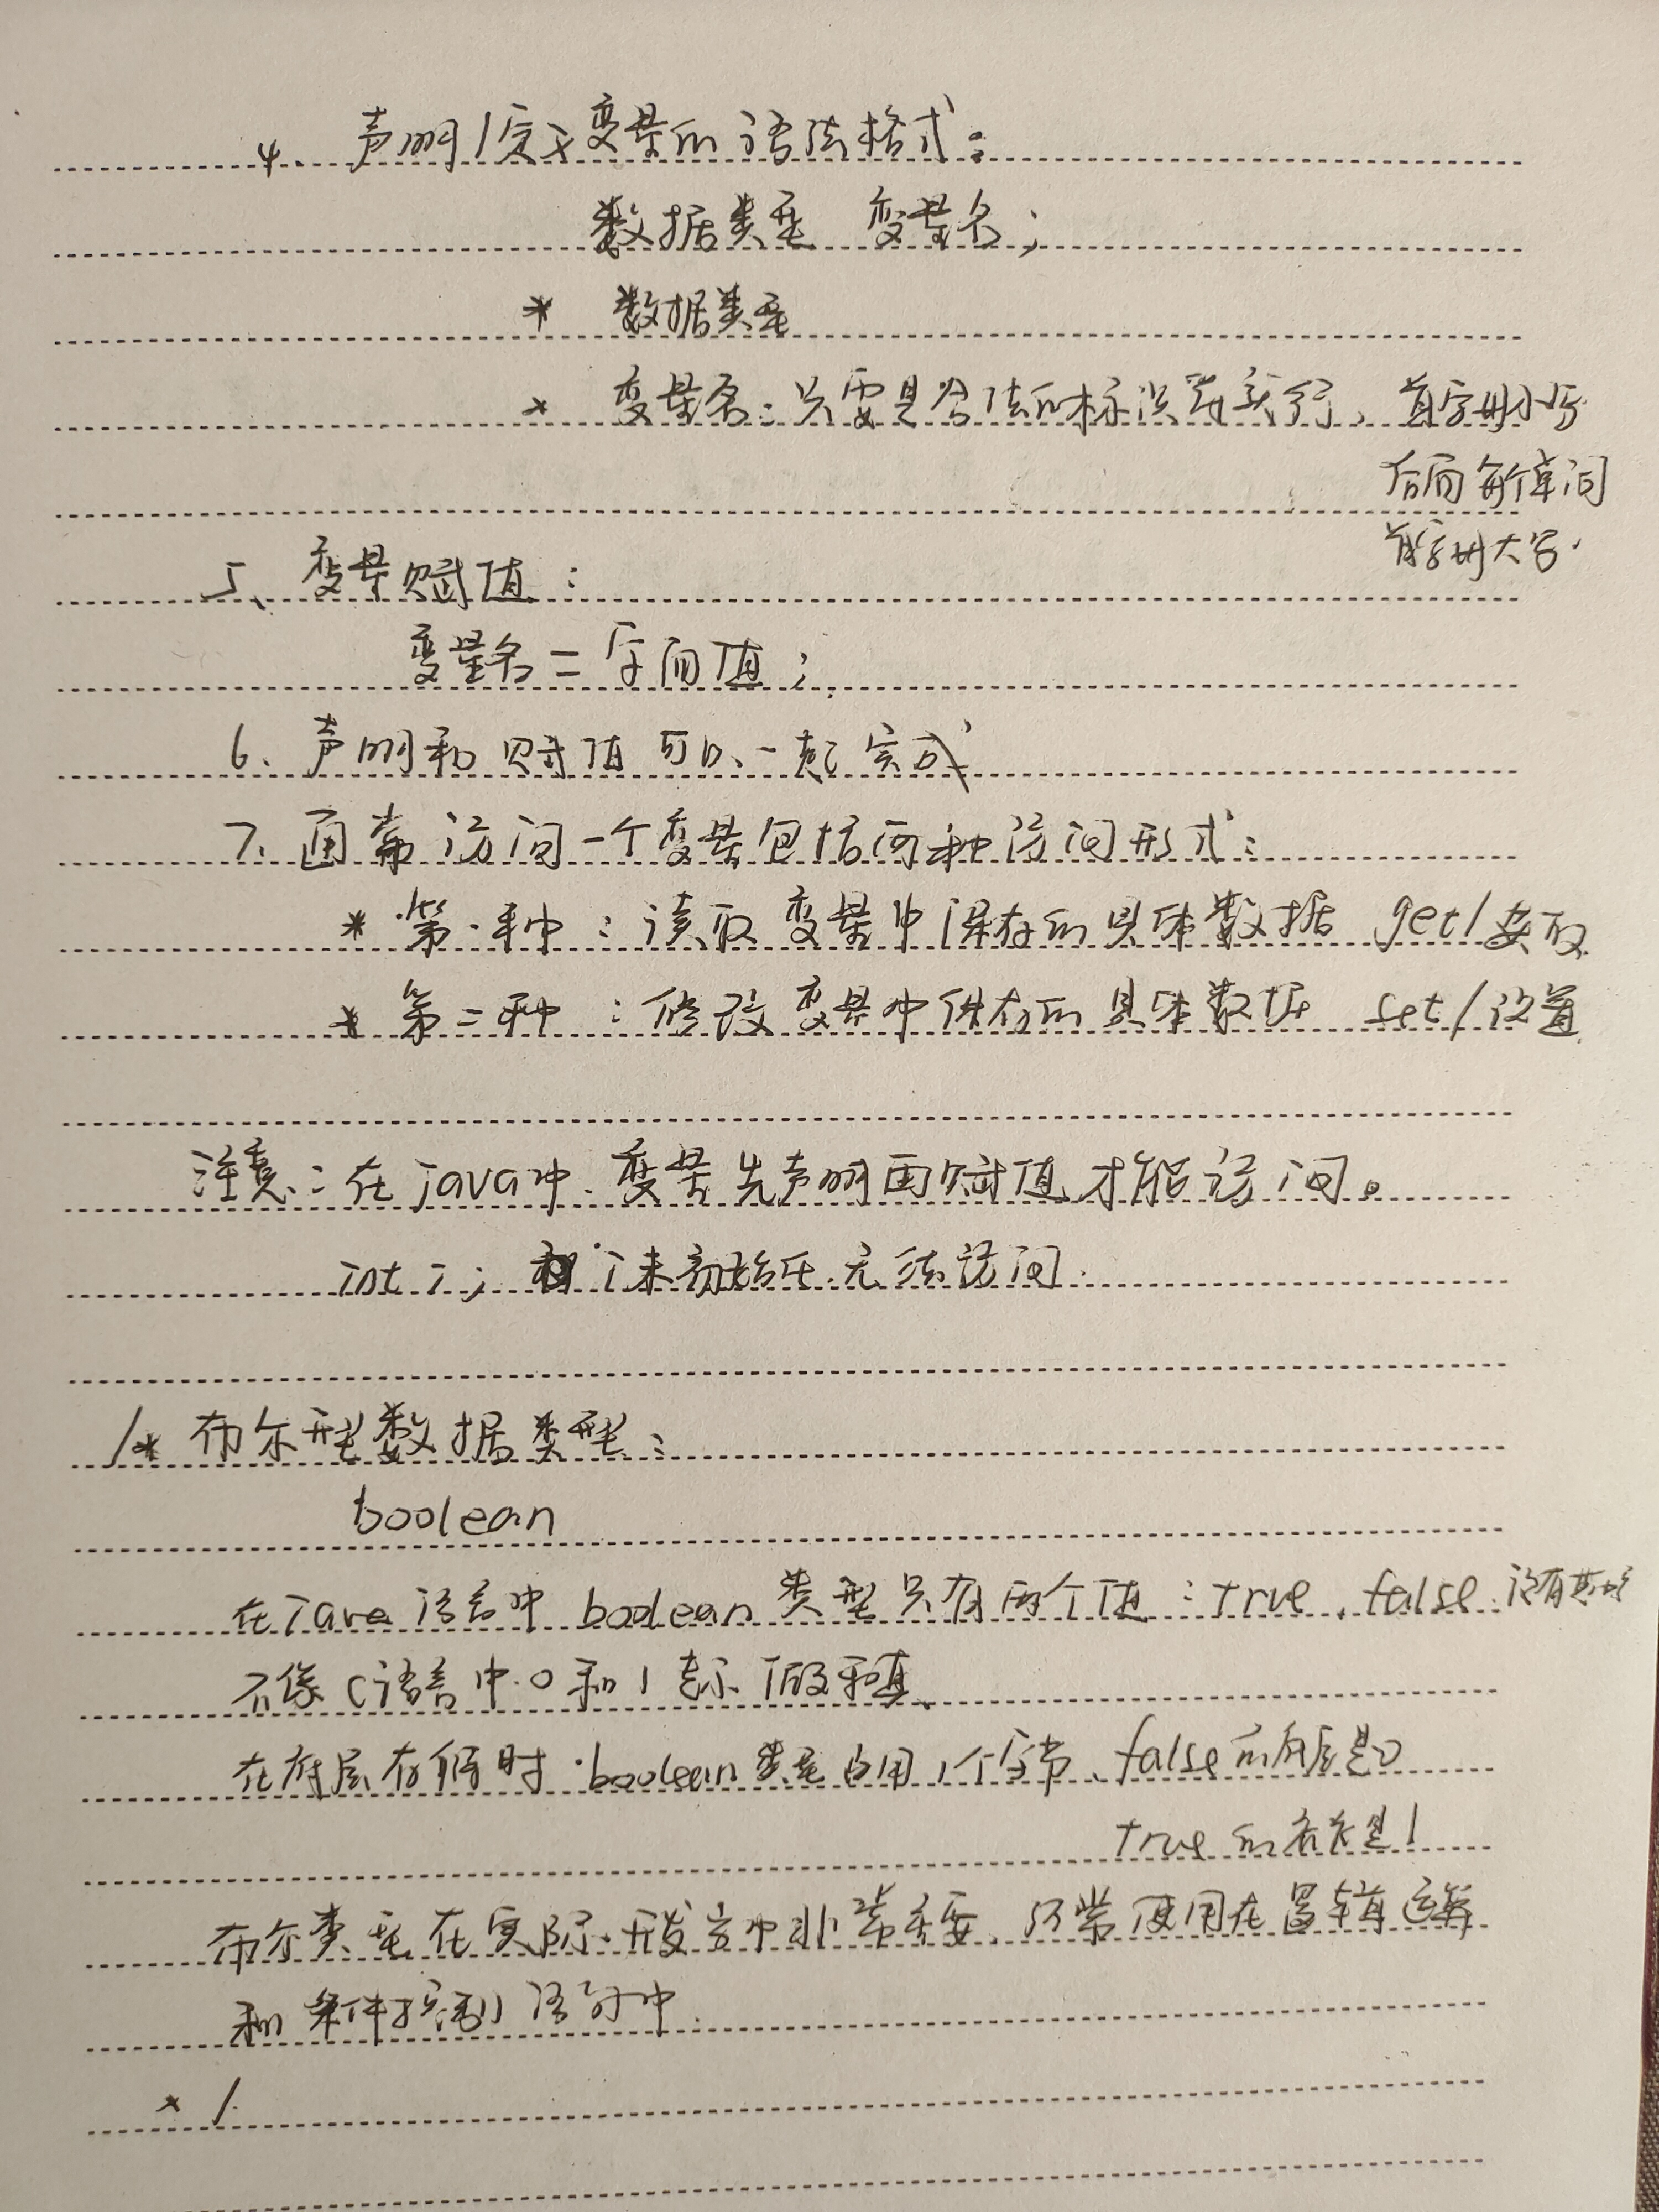 4、声明/定义变量的语法格式：
数据类型 变量名；
* 数据类型
* 变量名：只要是合法的标识符就行，首字母小写
后面每个单词
首字母大写.
5、变量赋值：
变量名 = 字面值；
6、声明和赋值可以一起完成
7、通常访问一个变量包括两种访问形式：
* 第一种：读取变量中保存的具体数据 get/获取
* 第二种：修改变量中保存的具体数据 set/设置
注意：在java中，变量先声明再赋值才能访问。
int i； i未初始化，无法访问.
/* 布尔型数据类型：
boolean
在java语言中 boolean 类型只有两个值：true，false，没有其他
不像C语言中，0和1表示假和真、
在底层存储时，boolean类型占用1个字节、false的底层是0
true的底层是1
布尔类型在实际开发中非常重要，经常使用在逻辑运算
和条件控制语句中.
*/